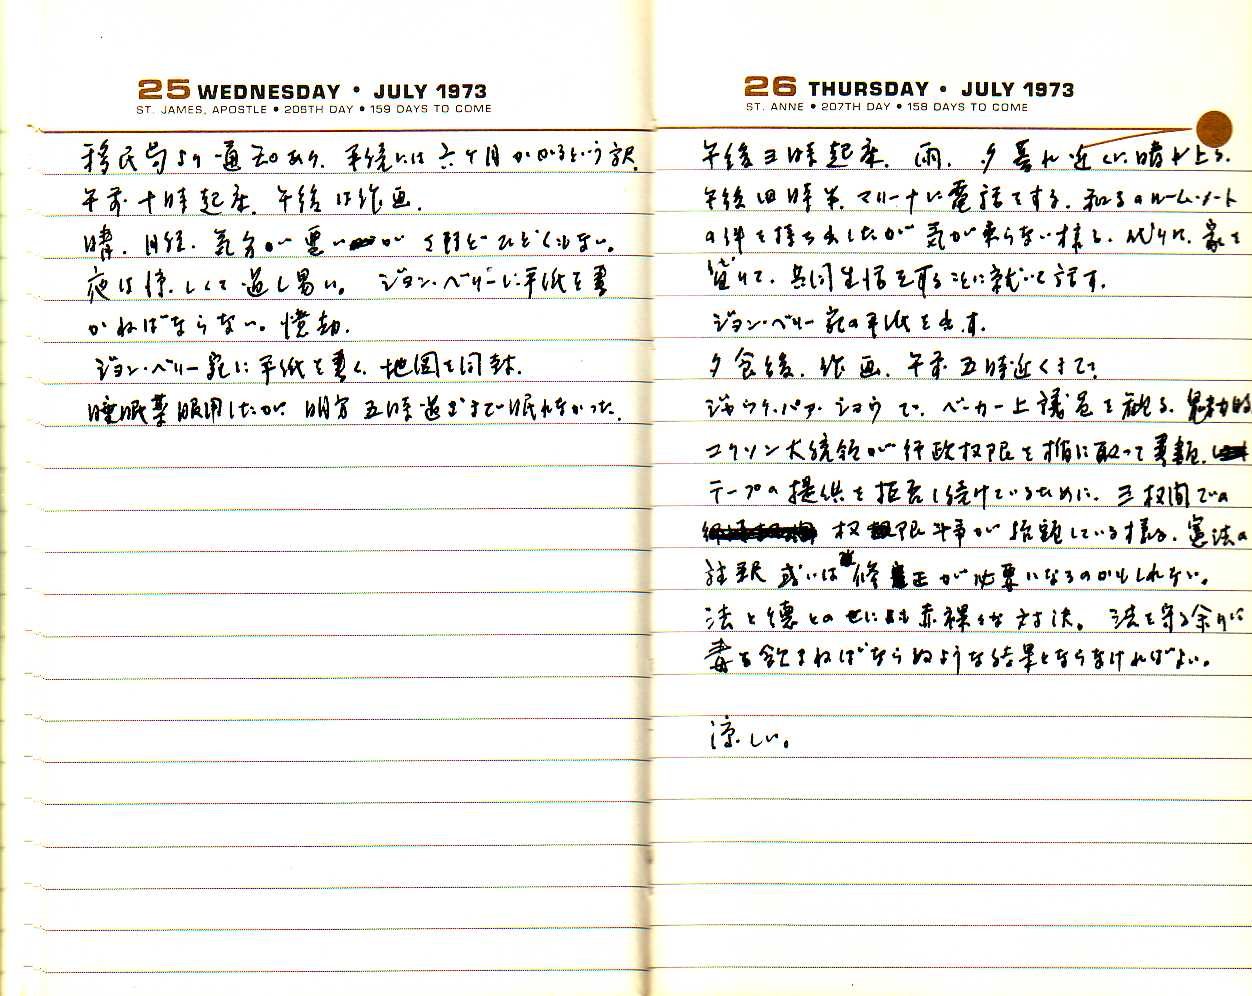 25 WEDNESDAY • JULY 1973
ST. JAMES, APOSTLE • 206TH DAY • 159 DAYS TO COME
移民局より通知あり、手続には六ケ月かかるという訳。
午前十時起床。午後は作画。
晴。月経。気分が悪いが さ程どひどくはない。
夜は涼しくて過し易い。 ジョン・ベリーに手紙を書
かねばならない。億劫。
ジョン・ベリー宛に手紙を書く、地図を同封。
睡眠薬服用したが、明方五時過ぎまで眠れなかった。
26 THURSDAY • JULY 1973
ST. ANNE • 207TH DAY • 158 DAYS TO COME
午後三時起床。雨。夕暮れ近くに晴れ上る。
午後四時半、マリーナに電話をする。ルーム・メート
の件を持ち出したが気が乗らない様子。代りに、家を
借りて、共同生活をすることに就いて話す。
ジョン・ベリー宛の手紙を出す。
夕食後、作画、午前五時近くまで。
ジャック・パア・ショウで、ベーカー上議員を観る。魅力的
ニクソン大統領が行政权限を楯に取って書類、
テープの提供を拒否し続けているために、三权間での
权限斗争が している様子。憲法の
註釈 或いは 修正が必要になるのかもしれない。
法と徳との 赤裸々な対決。 法を守る余りに
毒を飲まねばならぬような結果とならなければよい。
涼しい。